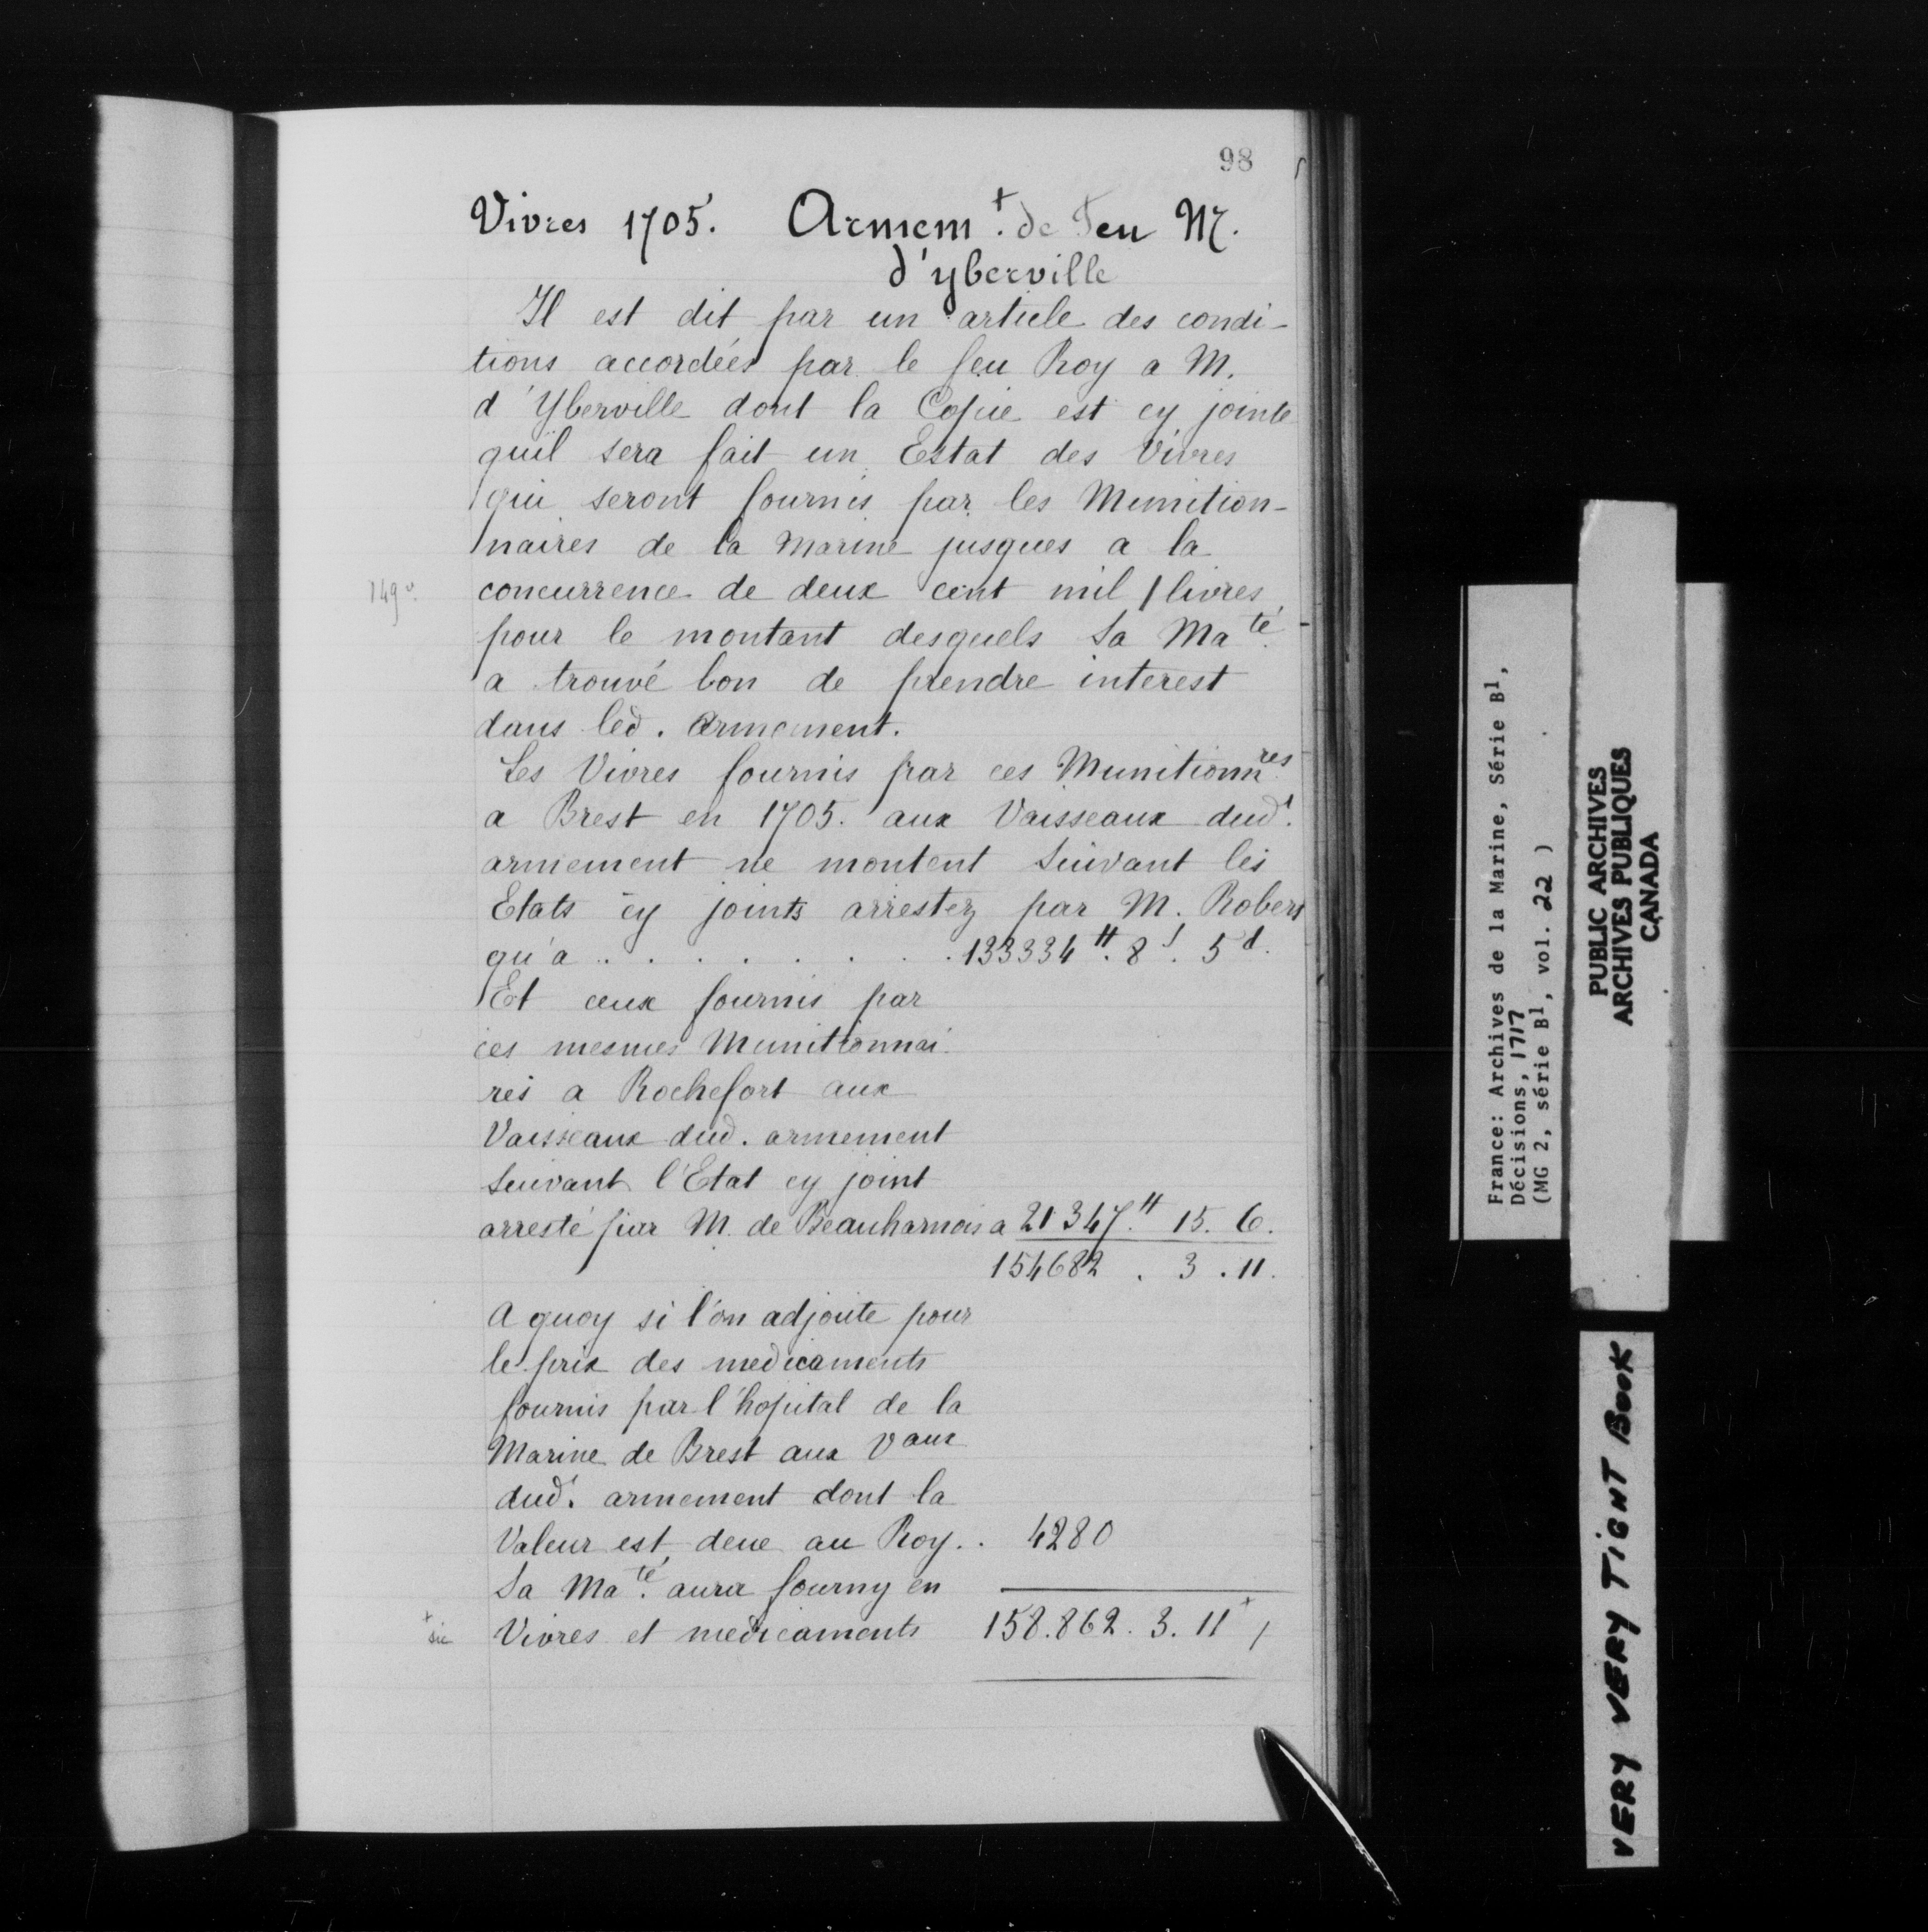 98
Vivres 1705. Armemt. de Feu Mr.
d'yberville
Il est dit par un article des condi-
tions accordées par le feu Roy a M.
d'Yberville dont la Copie est cy jointe
quil sera fait un Estat des Vivres
qui seront fournis par les Munition-
naires de la Marine jusques a la
149v.
concurrence de deux cent mil / livres
pour le montant desquels Sa Maté.
a trouvé bon de prendre interest
dans led. armement.
Les Vivres fournis par ces Munitionnres
a Brest en 1705. aux Vaisseaux dud.
armement ne montent suivant les
Etats cy joints arrestez par M. Robert
qu'a . . . . . . . . . 133334 ₶. 8 s. 5 d.
Et ceux fournis par
ces mesmes Munitionnai-
res a Rochefort aux
Vaisseaux dud. armement
suivant l'Etat cy joint
arresté par M. de Beauharnois a 21347.₶ 15. 6.
154682 . 3 . 11.
A quoy si l'on adjoute pour
le prix des medicaments
fournis par l'hopital de la
Marine de Brest aux Vaux
dud. armement dont la
Valeur est deue au Roy. . 4280
Sa Maté. aura fourny en
+ sic
Vivres et medicaments 158.862. 3. 11 + /
France: Archives de la Marine, Série B1,
Décisions, 1717
(MG 2, série B1, vol. 22 )
PUBLIC ARCHIVES
ARCHIVES PUBLIQUES
CANADA
VERY VERY TIGHT BOOK